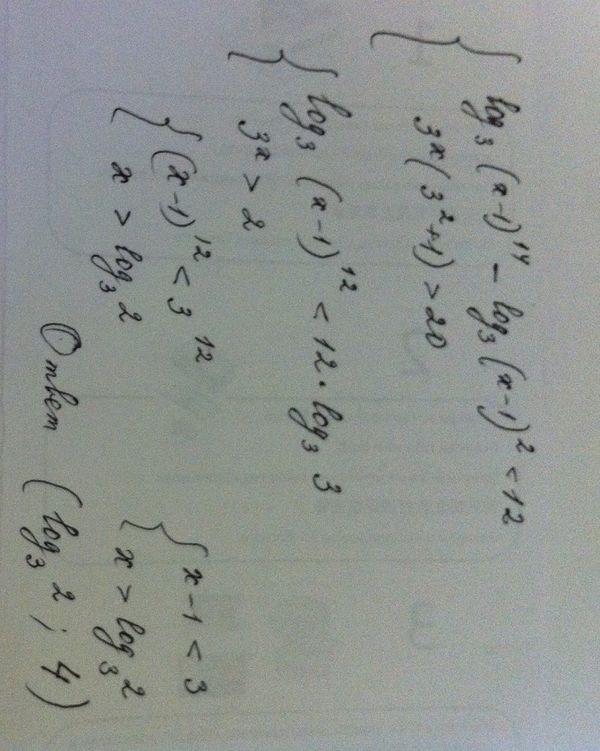 { log₃ (x-1)¹⁴ - log₃ (x-1)² < 12
3ˣ(3²+1) > 20
{ log₃ (x-1)¹² < 12 · log₃ 3
3ˣ > 2
{ (x-1)¹² < 3¹² { x-1 < 3
x > log₃ 2 x > log₃ 2
Ответ (log₃ 2 ; 4)